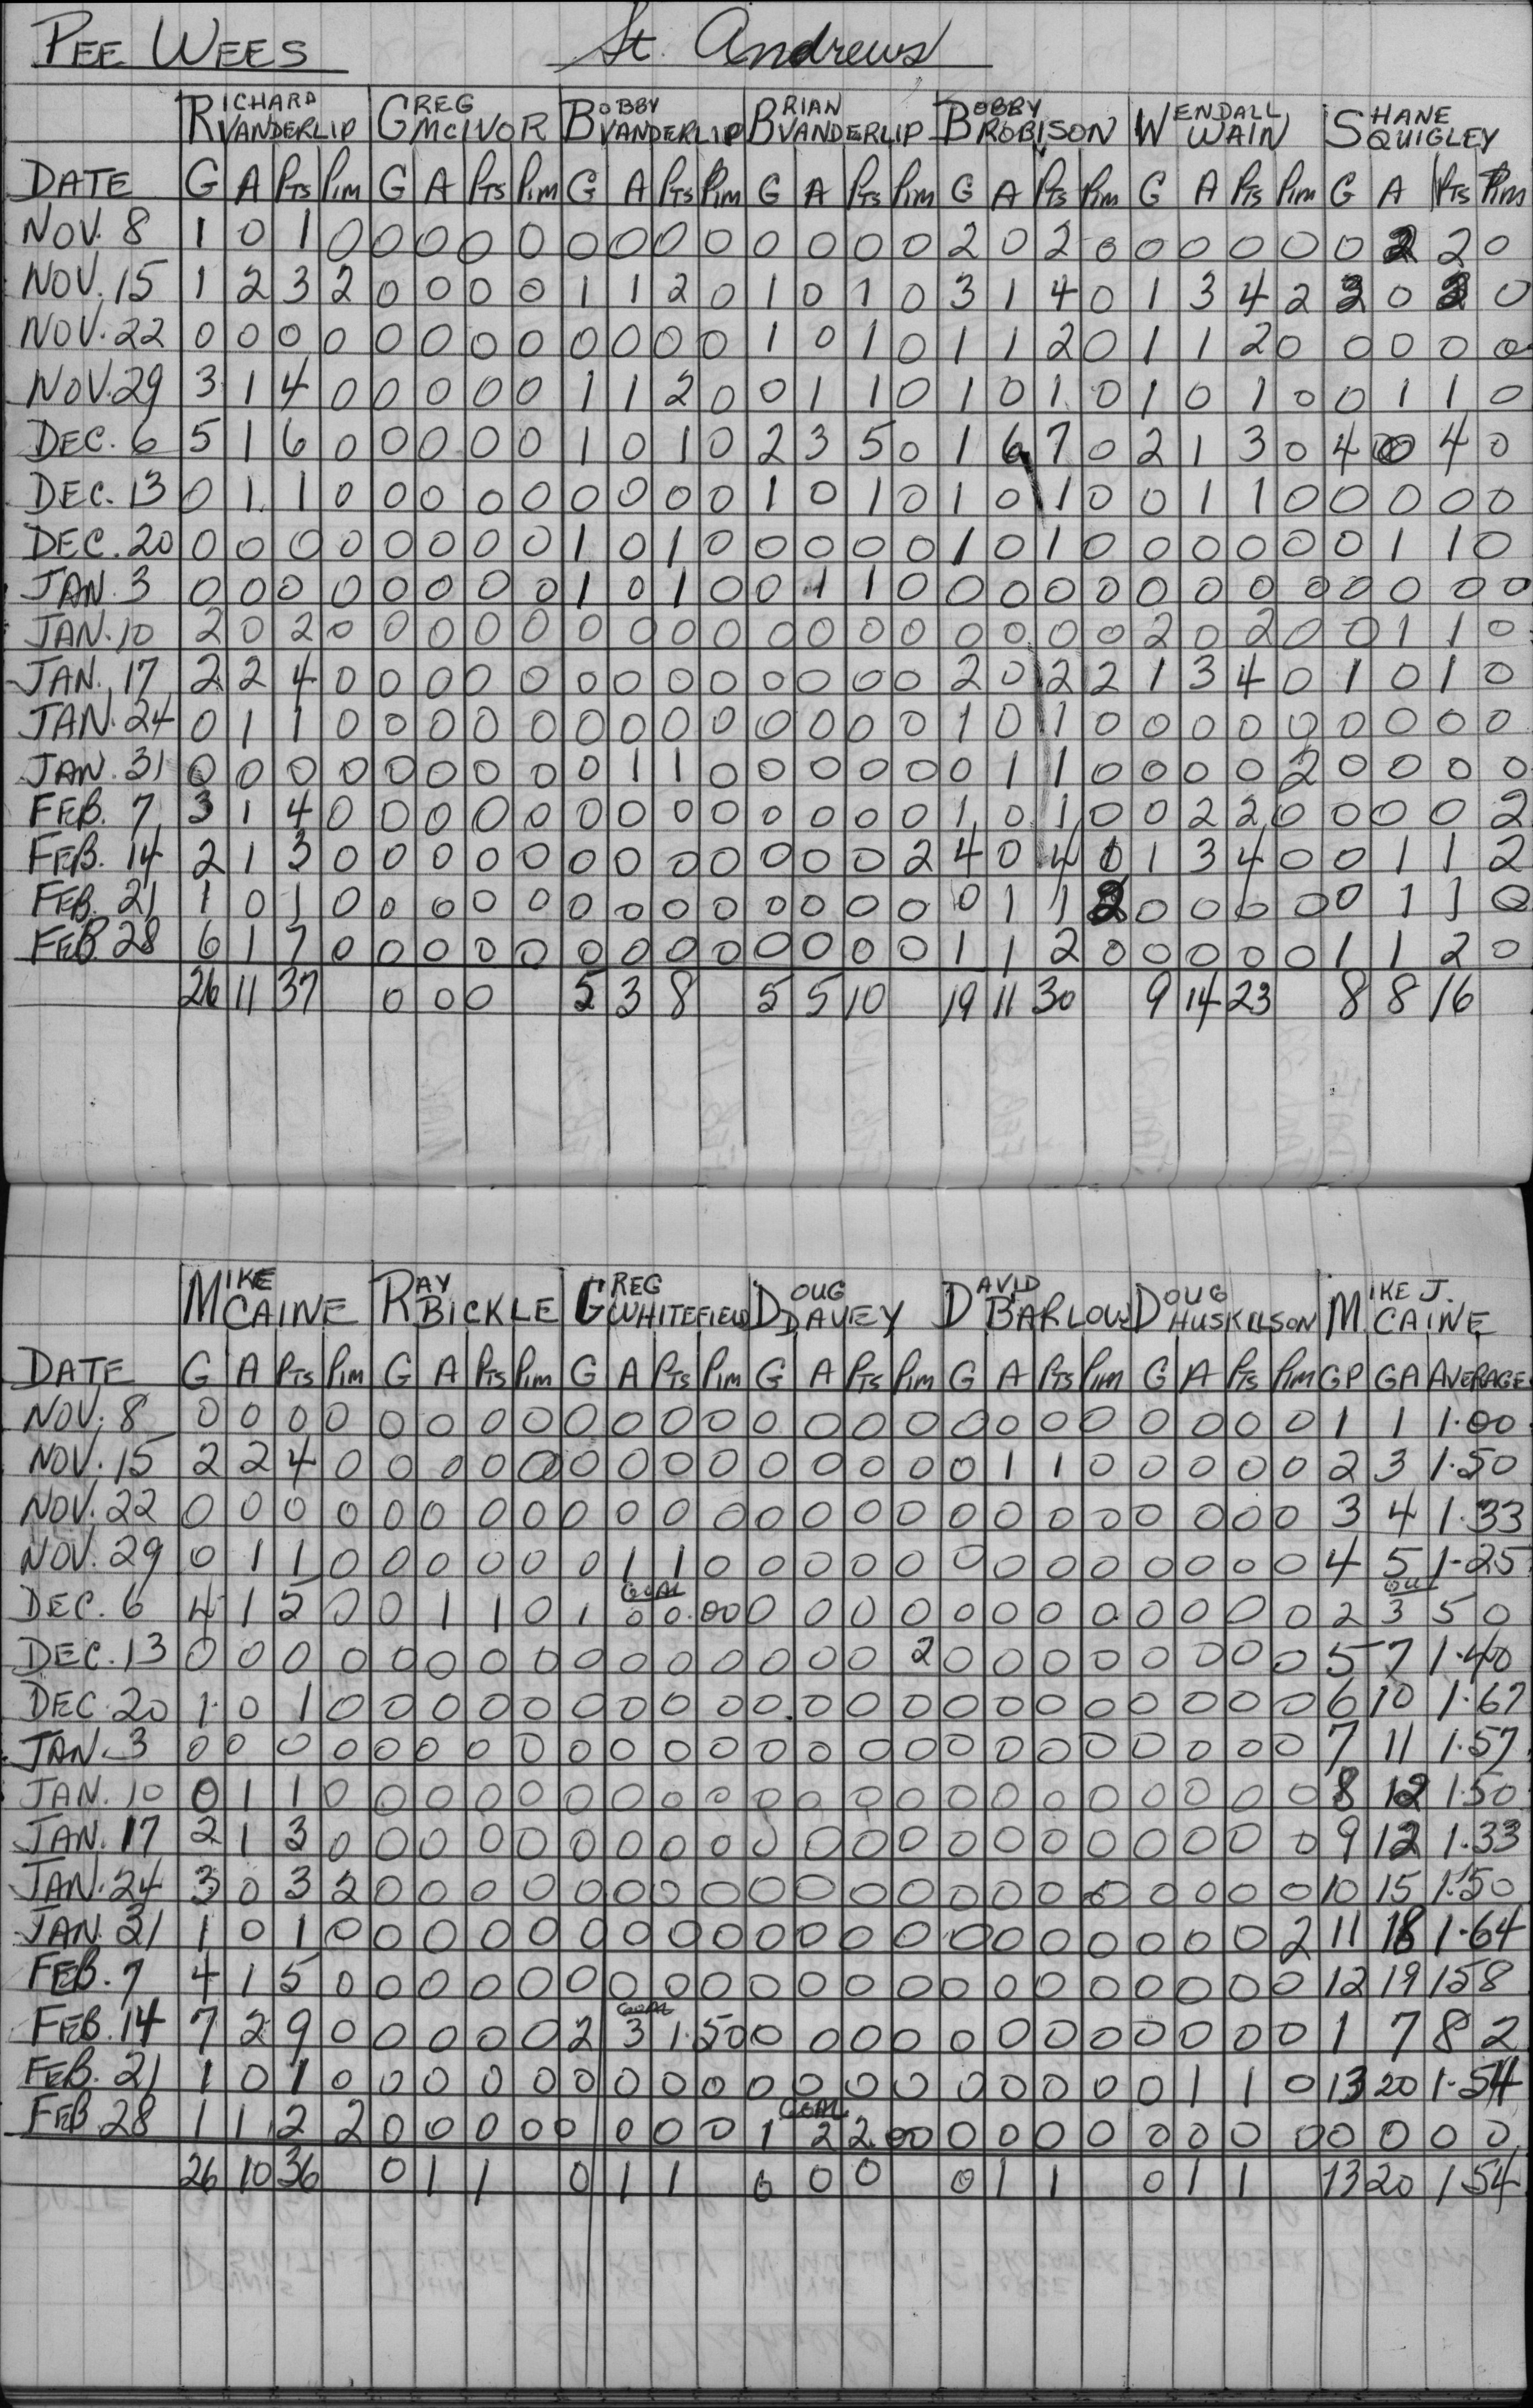 PEE WEES St. Andrews
RICHARD VANDERLIP GREG MCIVOR BOBBY VANDERLIP BRIAN VANDERLIP BOBBY ROBISON WENDALL WAIN SHANE QUIGLEY
DATE G A PTS PIM G A PTS PIM G A PTS PIM G A PTS PIM G A PTS PIM G A PTS PIM G A PTS PIM
NOV. 8 1 0 1 0 0 0 0 0 0 0 0 0 0 0 0 0 2 0 2 0 0 0 0 0 0 2 2 0
NOV. 15 1 2 3 2 0 0 0 0 1 1 2 0 1 0 1 0 3 1 4 0 1 3 4 2 2 0 2 0
NOV. 22 0 0 0 0 0 0 0 0 0 0 0 0 1 0 1 0 1 1 2 0 1 1 2 0 0 0 0 0
NOV. 29 3 1 4 0 0 0 0 0 1 1 2 0 0 1 1 0 1 0 1 0 1 0 1 0 0 1 1 0
DEC. 6 5 1 6 0 0 0 0 0 1 0 1 0 2 3 5 0 1 6 7 0 2 1 3 0 4 0 4 0
DEC. 13 0 1 1 0 0 0 0 0 0 0 0 0 1 0 1 0 1 0 1 0 0 1 1 0 0 0 0 0
DEC. 20 0 0 0 0 0 0 0 0 1 0 1 0 0 0 0 0 1 0 1 0 0 0 0 0 0 1 1 0
JAN. 3 0 0 0 0 0 0 0 0 1 0 1 0 0 1 1 0 0 0 0 0 0 0 0 0 0 0 0 0
JAN. 10 2 0 2 0 0 0 0 0 0 0 0 0 0 0 0 0 0 0 0 0 2 0 2 0 0 1 1 0
JAN. 17 2 2 4 0 0 0 0 0 0 0 0 0 0 0 0 0 2 0 2 2 1 3 4 0 1 0 1 0
JAN. 24 0 1 1 0 0 0 0 0 0 0 0 0 0 0 0 0 1 0 1 0 0 0 0 0 0 0 0 0
JAN. 31 0 0 0 0 0 0 0 0 0 1 1 0 0 0 0 0 0 1 1 0 0 0 0 2 0 0 0 0
FEB. 7 3 1 4 0 0 0 0 0 0 0 0 0 0 0 0 0 1 0 1 0 0 2 2 0 0 0 0 2
FEB. 14 2 1 3 0 0 0 0 0 0 0 0 0 0 0 0 2 4 0 4 0 1 3 4 0 0 1 1 2
FEB. 21 1 0 1 0 0 0 0 0 0 0 0 0 0 0 0 0 0 1 1 2 0 0 0 0 0 1 1 0
FEB. 28 6 1 7 0 0 0 0 0 0 0 0 0 0 0 0 0 1 1 2 0 0 0 0 0 1 1 2 0
26 11 37 0 0 0 5 3 8 5 5 10 19 11 30 9 14 23 8 8 16
MIKE CAINE RAY BICKLE GREG WHITEFIELD DOUG DAVEY DAVID BARLOW DOUG HUSKILSON MIKE J. CAINE
DATE G A PTS PIM G A PTS PIM G A PTS PIM G A PTS PIM G A PTS PIM G A PTS PIM GP GA AVERAGE
NOV. 8 0 0 0 0 0 0 0 0 0 0 0 0 0 0 0 0 0 0 0 0 0 0 0 0 1 1 1.00
NOV. 15 2 2 4 0 0 0 0 0 0 0 0 0 0 0 0 0 0 1 1 0 0 0 0 0 2 3 1.50
NOV. 22 0 0 0 0 0 0 0 0 0 0 0 0 0 0 0 0 0 0 0 0 0 0 0 0 3 4 1.33
NOV. 29 0 1 1 0 0 0 0 0 0 1 1 0 0 0 0 0 0 0 0 0 0 0 0 0 4 5 1.25
GOAL OUT
DEC. 6 4 1 5 0 0 1 1 0 1 0 0.00 0 0 0 0 0 0 0 0 0 0 0 0 2 3 5 0
DEC. 13 0 0 0 0 0 0 0 0 0 0 0 0 0 0 0 2 0 0 0 0 0 0 0 0 5 7 1.40
DEC. 20 1 0 1 0 0 0 0 0 0 0 0 0 0 0 0 0 0 0 0 0 0 0 0 0 6 10 1.67
JAN. 3 0 0 0 0 0 0 0 0 0 0 0 0 0 0 0 0 0 0 0 0 0 0 0 0 7 11 1.57
JAN. 10 0 1 1 0 0 0 0 0 0 0 0 0 0 0 0 0 0 0 0 0 0 0 0 0 8 12 1.50
JAN. 17 2 1 3 0 0 0 0 0 0 0 0 0 0 0 0 0 0 0 0 0 0 0 0 0 9 12 1.33
JAN. 24 3 0 3 2 0 0 0 0 0 0 0 0 0 0 0 0 0 0 0 0 0 0 0 0 10 15 1.50
JAN. 31 1 0 1 0 0 0 0 0 0 0 0 0 0 0 0 0 0 0 0 0 0 0 0 2 11 18 1.64
FEB. 7 4 1 5 0 0 0 0 0 0 0 0 0 0 0 0 0 0 0 0 0 0 0 0 0 12 19 1.58
GOAL
FEB. 14 7 2 9 0 0 0 0 0 2 3 1.50 0 0 0 0 0 0 0 0 0 0 0 0 1 7 8 2
FEB. 21 1 0 1 0 0 0 0 0 0 0 0 0 0 0 0 0 0 0 0 0 0 1 1 0 13 20 1.54
GOAL
FEB 28 1 1 2 2 0 0 0 0 0 0 0 0 1 2 2.00 0 0 0 0 0 0 0 0 0 0 0 0
26 10 36 0 1 1 0 1 1 0 0 0 0 1 1 0 1 1 13 20 1.54